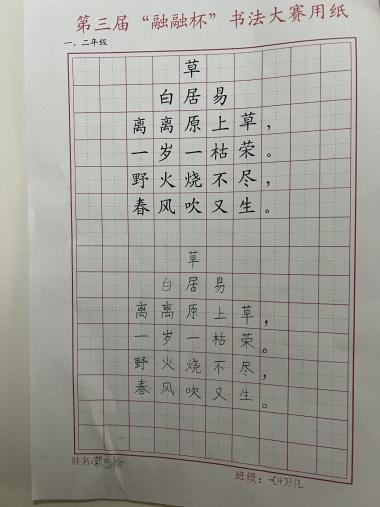 第三届“融融杯”书法大赛用纸
一、二年级
草
白居易
离离原上草，
一岁一枯荣。
野火烧不尽，
春风吹又生。
草
白居易
离离原上草，
一岁一枯荣。
野火烧不尽，
春风吹又生。
姓名:
班级：